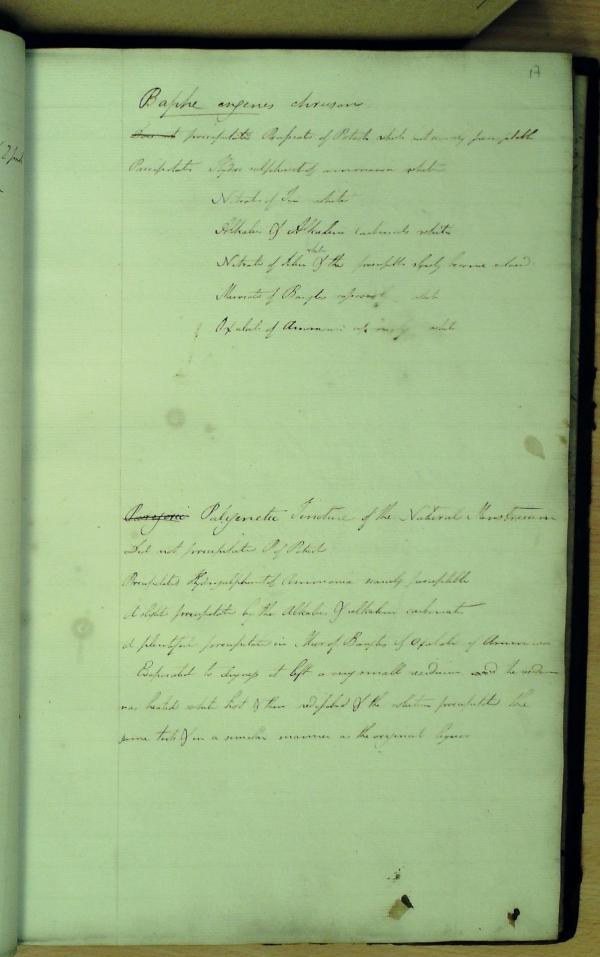 17
Baphe eugenes chruson
precipitates Prussiate of Potash white not
Precipitates Hydrosulphuret of ammonia white
Nitrate of Tin white
Alkalies & Alkaline carbonates white
Nitrate of silver white & the precipitate slowly became
Muriate of Barytes white
Oxalate of Ammonia white
Palingenetic Tincture of the Natural Menstruum
Did not precipitate P of Potash
Precipitated Hydrosulphuret of Ammonia scarcely perceptible
A slight precipitate by the Alkalies & alkaline carbonates
A plentiful precipitate in Mur of Barytes & Oxalate of Ammonia
Evaporated to dryness it left a very small residuum and the
was heated white hot & then redissolved & the solution precipitated the
same tests & in a similar manner as the original liquor